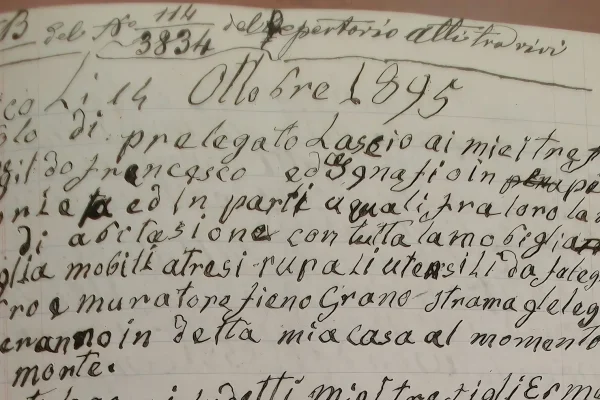 B del N.º 114/3834 del Repertorio atti tra vivi
co Li 14 Ottobre 1895
olo di prelegato Lascio ai miei tre f
gildo francesco ed Ignafio in
rieta ed in parti uguali fra loro la
di abitasione con tutta la mobiglia
glia mobili atresi rurali utensili da faleg
ro e muratore fieno Grano strama e leg
eranno in detta mia casa al momento
morte.
detti miei tre figli Erme